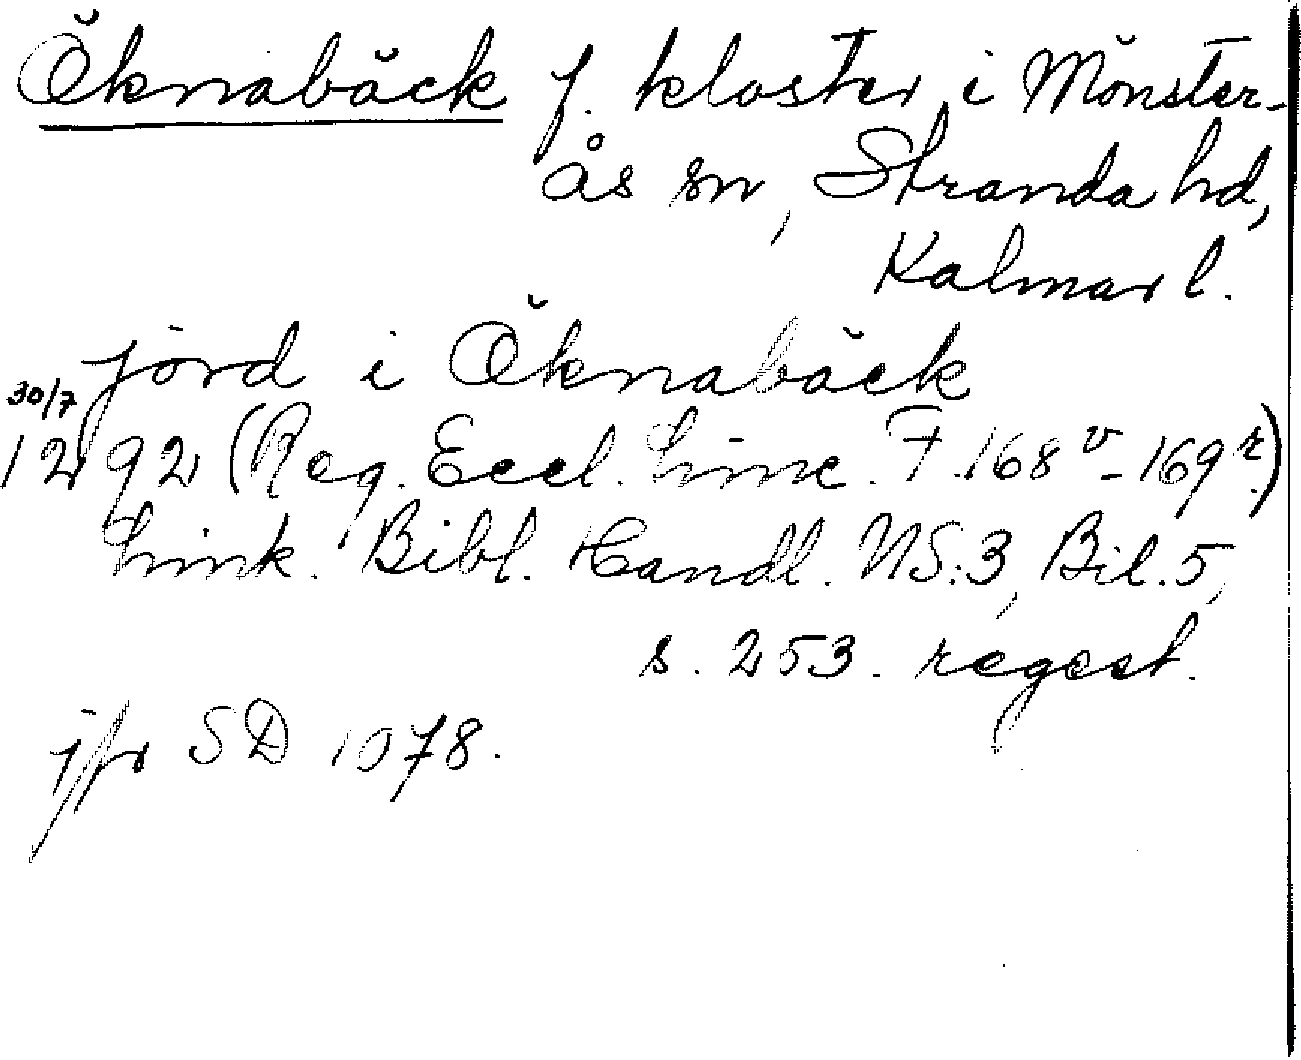 Öknabäck f. kloster i Mönster-
ås sn, Stranda hd,
Kalmar l.
jord i Öknabäck
30/7
1292 (Reg. Eccl. Linc. F. 168v-169r.)
Link. Bibl. Handl. NS:3, Bil. 5,
s. 253. regest.
jfr SD 1078.